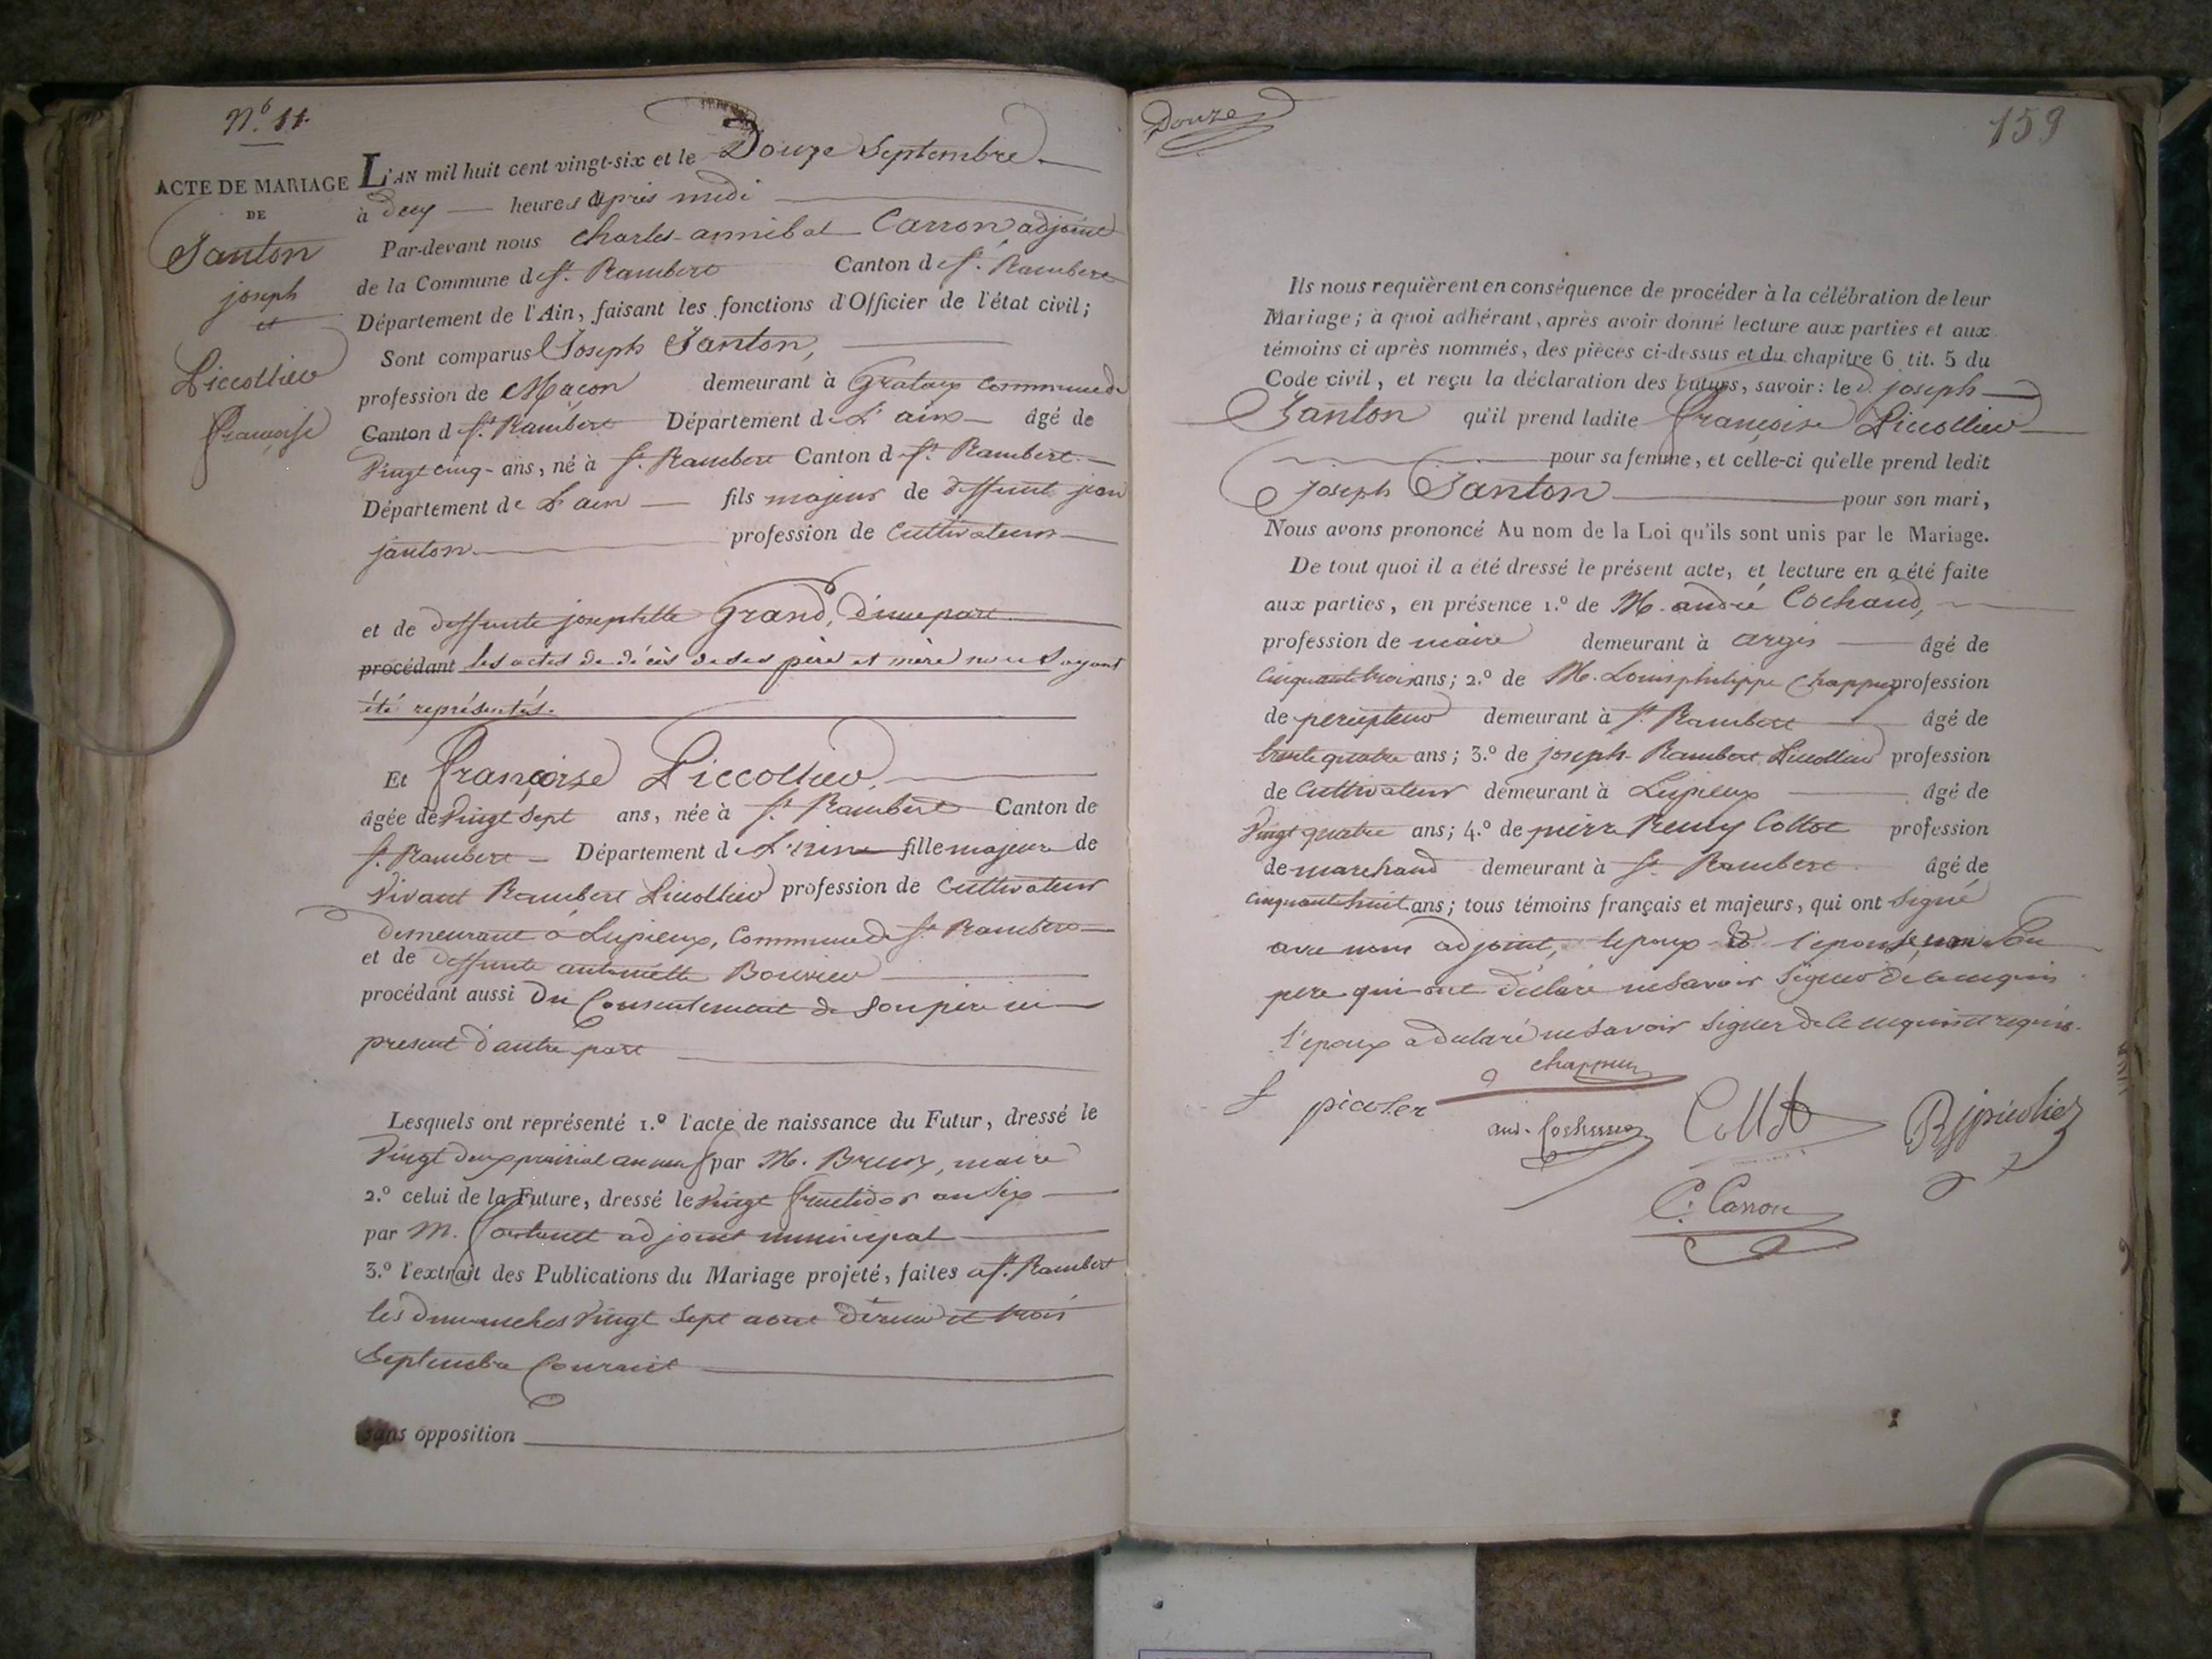 N.º 11.
ACTE DE MARIAGE
DE
Janton
joseph
et
Piccollier
françoise
L'AN mil huit cent vingt-six et le Douze Septembre
à deux heures après midi
Par-devant nous Charles-annibal Carron adjoint
de la Commune de St. Rambert Canton de St. Rambert
Département de l'Ain, faisant les fonctions d'Officier de l'état civil;
Sont comparus Joseph Janton,
profession de Maçon demeurant à Gratoux Commune de
Canton d St. Rambert Département de L'ain âgé de
Vingt cinq ans, né à St. Rambert Canton d St. Rambert
Département de L'ain fils majeur de deffunt jean
janton profession de Cultivateur
et de deffunte josephtte Grand, d'une part
procédant les actes de décès de ses père et mère nous ayant
été représentés.
Et françoise Piccollier,
âgée de Vingt Sept ans, née à St. Rambert Canton de
St. Rambert Département de L'ain fille majeure de
Vivant Rambert Piccollier profession de Cultivateur
demeurant à Lupieux, Commune de St. Rambert
et de deffunte antoinette Bouvier
procédant aussi Du Consentement de Son père ici
présent d'autre part
Lesquels ont représenté 1.º l'acte de naissance du Futur, dressé le
Vingt deux prairial an neuf par M. Brun, maire
2.º celui de la Future, dressé le Vingt fructidor an Six
par M. adjoint municipal
3.º l'extrait des Publications du Mariage projeté, faites a St. Rambert
les dimanches Vingt Sept aout dernier et trois
Septembre Courant
sans opposition
Douze
159
Ils nous requièrent en conséquence de procéder à la célébration de leur
Mariage; à quoi adhérant, après avoir donné lecture aux parties et aux
témoins ci après nommés, des pièces ci-dessus et du chapitre 6 tit. 5 du
Code civil, et reçu la déclaration des Futurs, savoir: le d. joseph
Janton qu'il prend ladite françoise Piccollier
pour sa femme, et celle-ci qu'elle prend ledit
joseph Janton pour son mari,
Nous avons prononcé Au nom de la Loi qu'ils sont unis par le Mariage.
De tout quoi il a été dressé le présent acte, et lecture en a été faite
aux parties, en présence 1.º de M. andré Cochand,
profession de maire demeurant à argis âgé de
Cinquante trois ans; 2.º de M. Louis philippe Chappuy profession
de percepteur demeurant à St. Rambert âgé de
trente quatre ans; 3.º de joseph-Rambert Picollier profession
de Cultivateur demeurant à Lupieux âgé de
Vingt quatre ans; 4.º de pierre Remy Collot profession
de marchand demeurant à St. Rambert âgé de
cinquante huit ans; tous témoins français et majeurs, qui ont Signé
avec nous adjoint, l'epouse non Son
pere qui ont déclaré ne Savoir Signer de ce enquis
l'epoux a declaré ne Savoir Signer de ce enquis et requis.
chappuy
f picoler
and. Cochand
Collot
RJ picolier
C. Carron